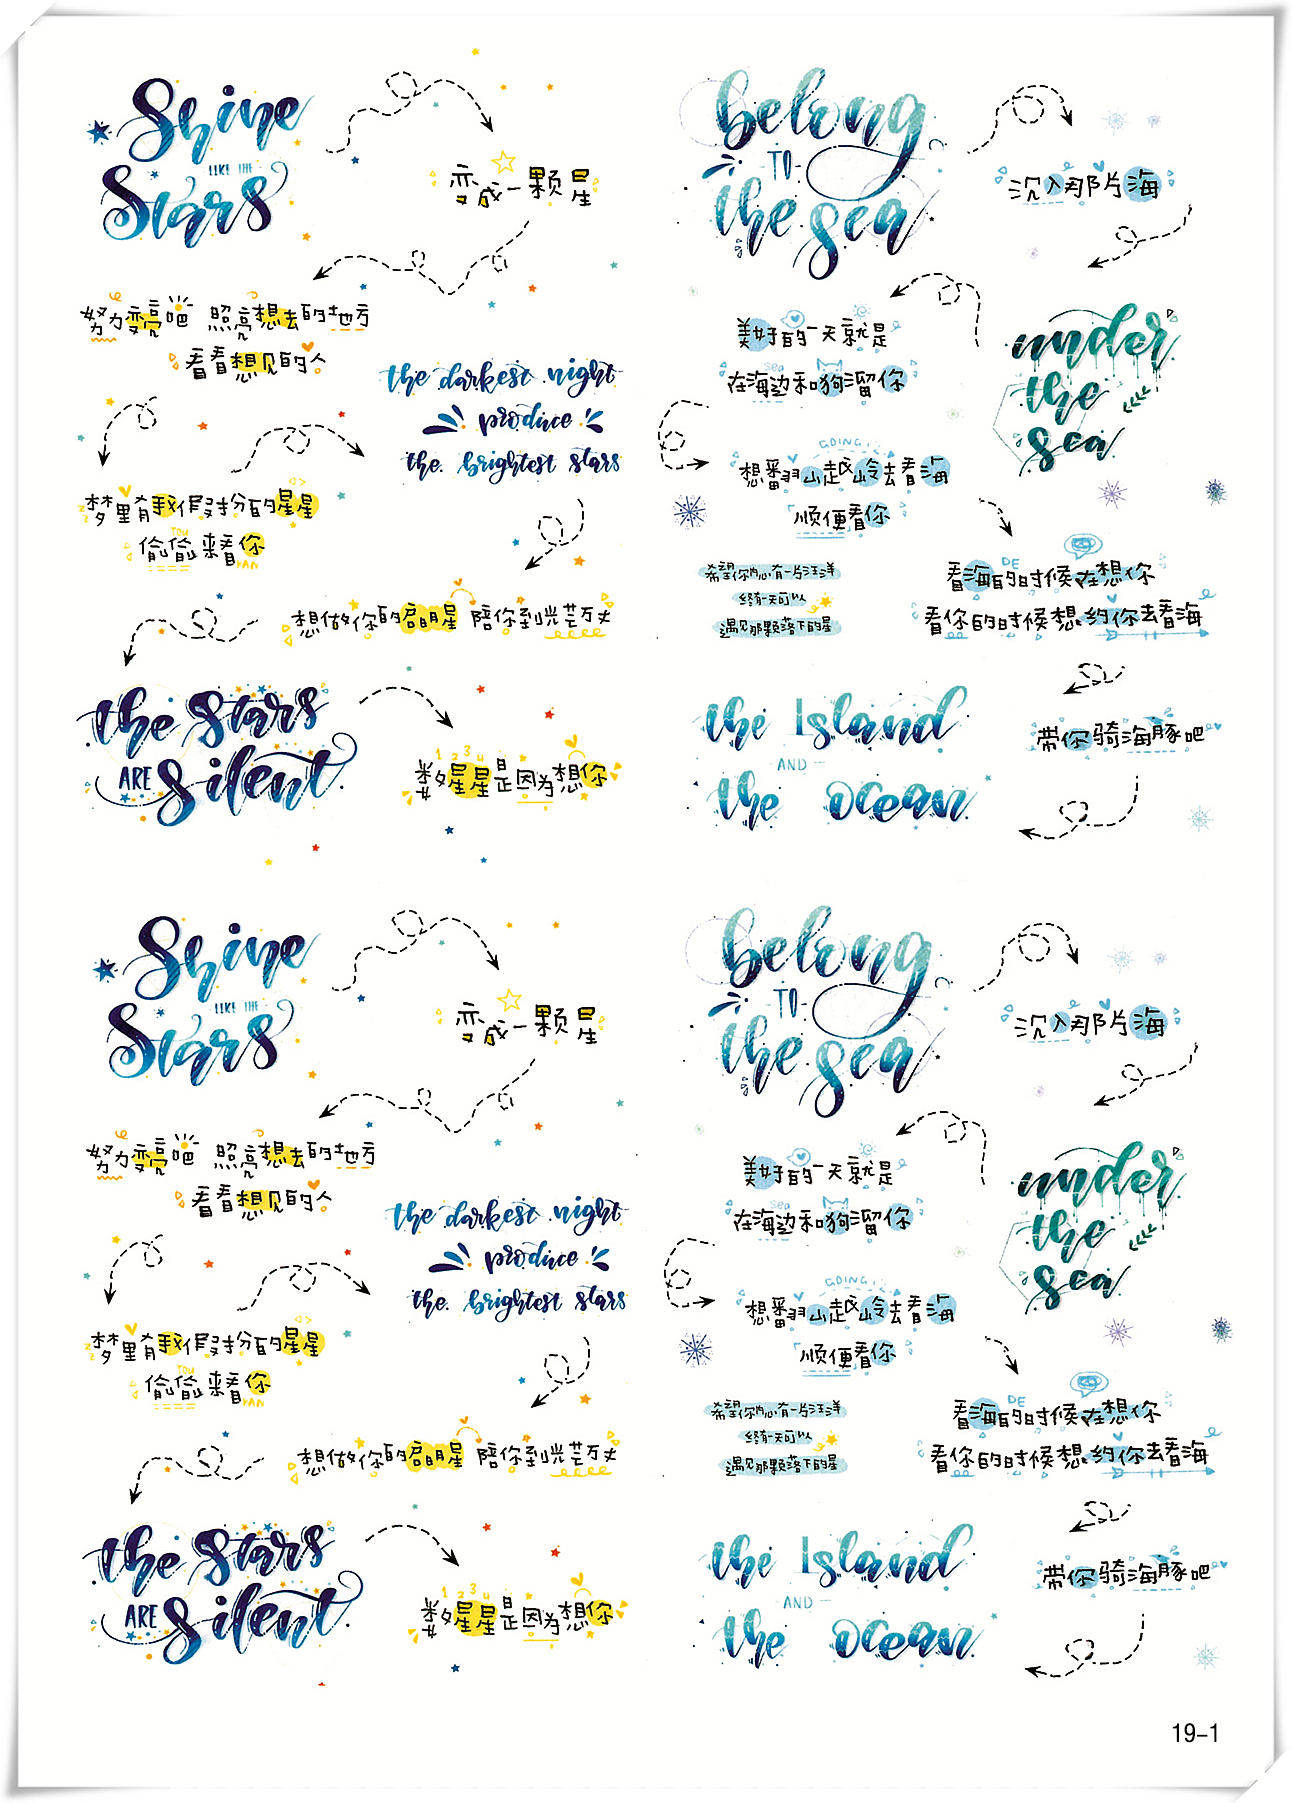 Shine
LIKE THE
Stars
变成一颗星
努力变亮吧 照亮想去的地方
看看想见的人
the darkest night
produce
the brightest stars
梦里有我假扮的星星
YOU
偷偷来看你
KAN
想做你的启明星 陪你到光芒万丈
the Stars
ARE Silent
1 2 3 4
数星星是因为想你
belong
TO
the sea
沉入那片海
美好的一天就是
sea
在海边和狗溜你
under
the
sea
GOING!
想翻山越岭去看海
顺便看你
希望你内心有一片汪洋
终有一天可以
遇见那颗落下的星
DE
看海的时候在想你
看你的时候想约你去看海
the Island
AND
the ocean
带你骑海豚吧
Shine
LIKE THE
Stars
变成一颗星
努力变亮吧 照亮想去的地方
看看想见的人
the darkest night
produce
the brightest stars
梦里有我假扮的星星
YOU
偷偷来看你
KAN
想做你的启明星 陪你到光芒万丈
the Stars
ARE Silent
1 2 3 4
数星星是因为想你
belong
TO
the sea
沉入那片海
美好的一天就是
sea
在海边和狗溜你
under
the
sea
GOING!
想翻山越岭去看海
顺便看你
希望你内心有一片汪洋
终有一天可以
遇见那颗落下的星
DE
看海的时候在想你
看你的时候想约你去看海
the Island
AND
the ocean
带你骑海豚吧
19-1